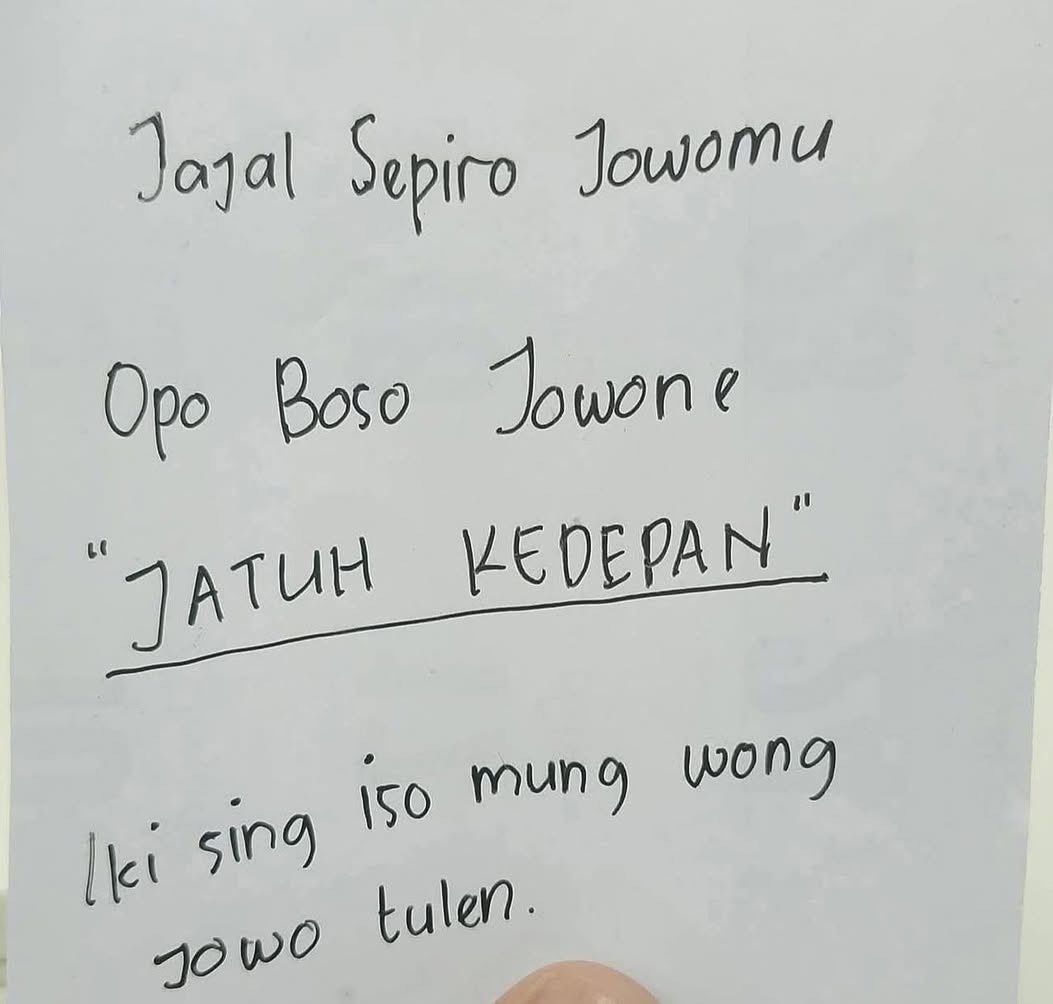 Jajal Sepiro Jowomu
Opo Boso Jowone
"JATUH KEDEPAN"
Iki sing iso mung wong
Jowo tulen.